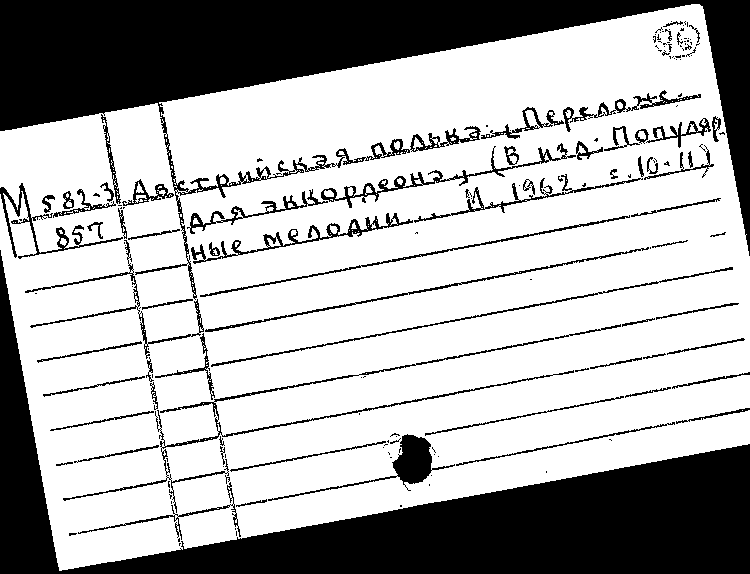 96
М 582-3 Австрийская полька. Перелож.
857 для аккордеона, (В изд: Популяр
ные мелодии... М., 1962. с. 10-11)